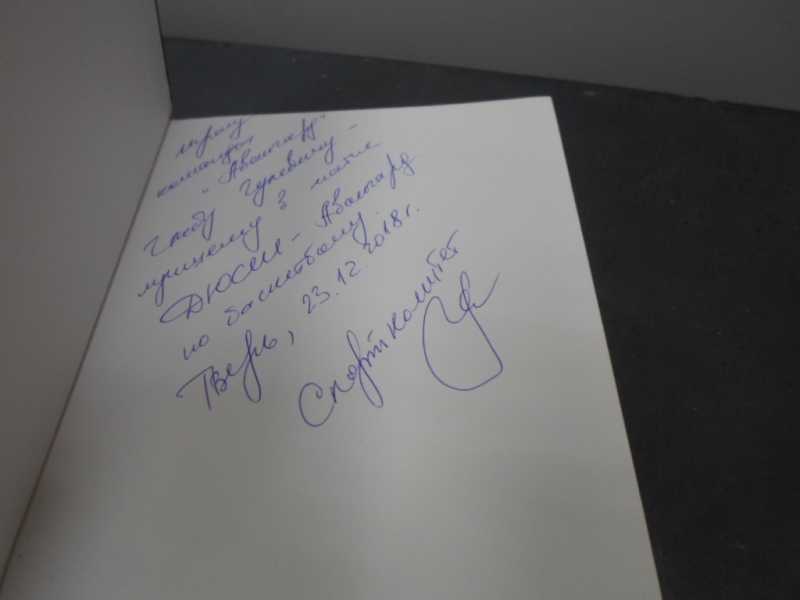 игроку
команды
"Авангард"
Глебу Гулевичу -
лучшему в матче
ДЮСШ - Авангард
по баскетболу.
Тверь, 23.12.2018г.
Спорткомитет